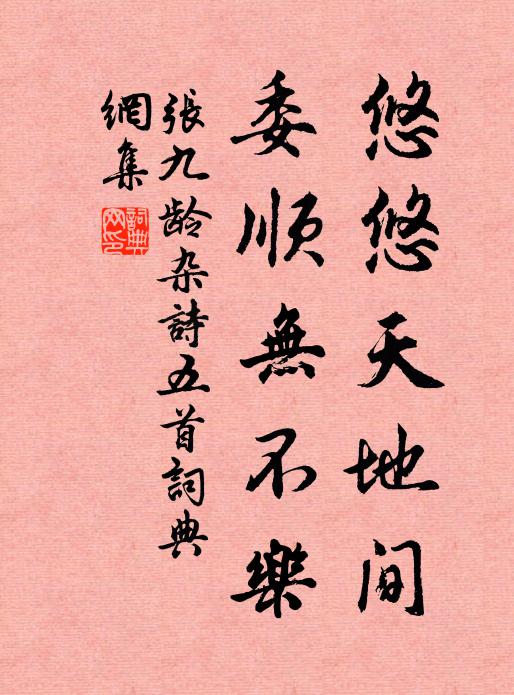 悠悠天地间
委顺無不樂
張九龄杂詩五首詞典
網集
詞典網印